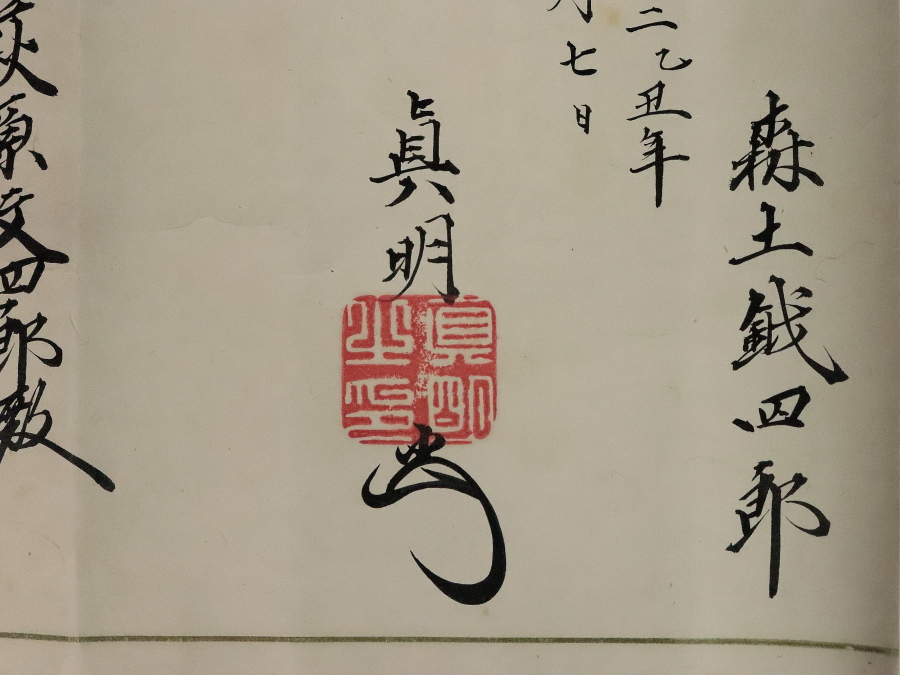 森土鉞四郎
二乙丑年
月七日
眞明
眞明之印
原文四郎殿